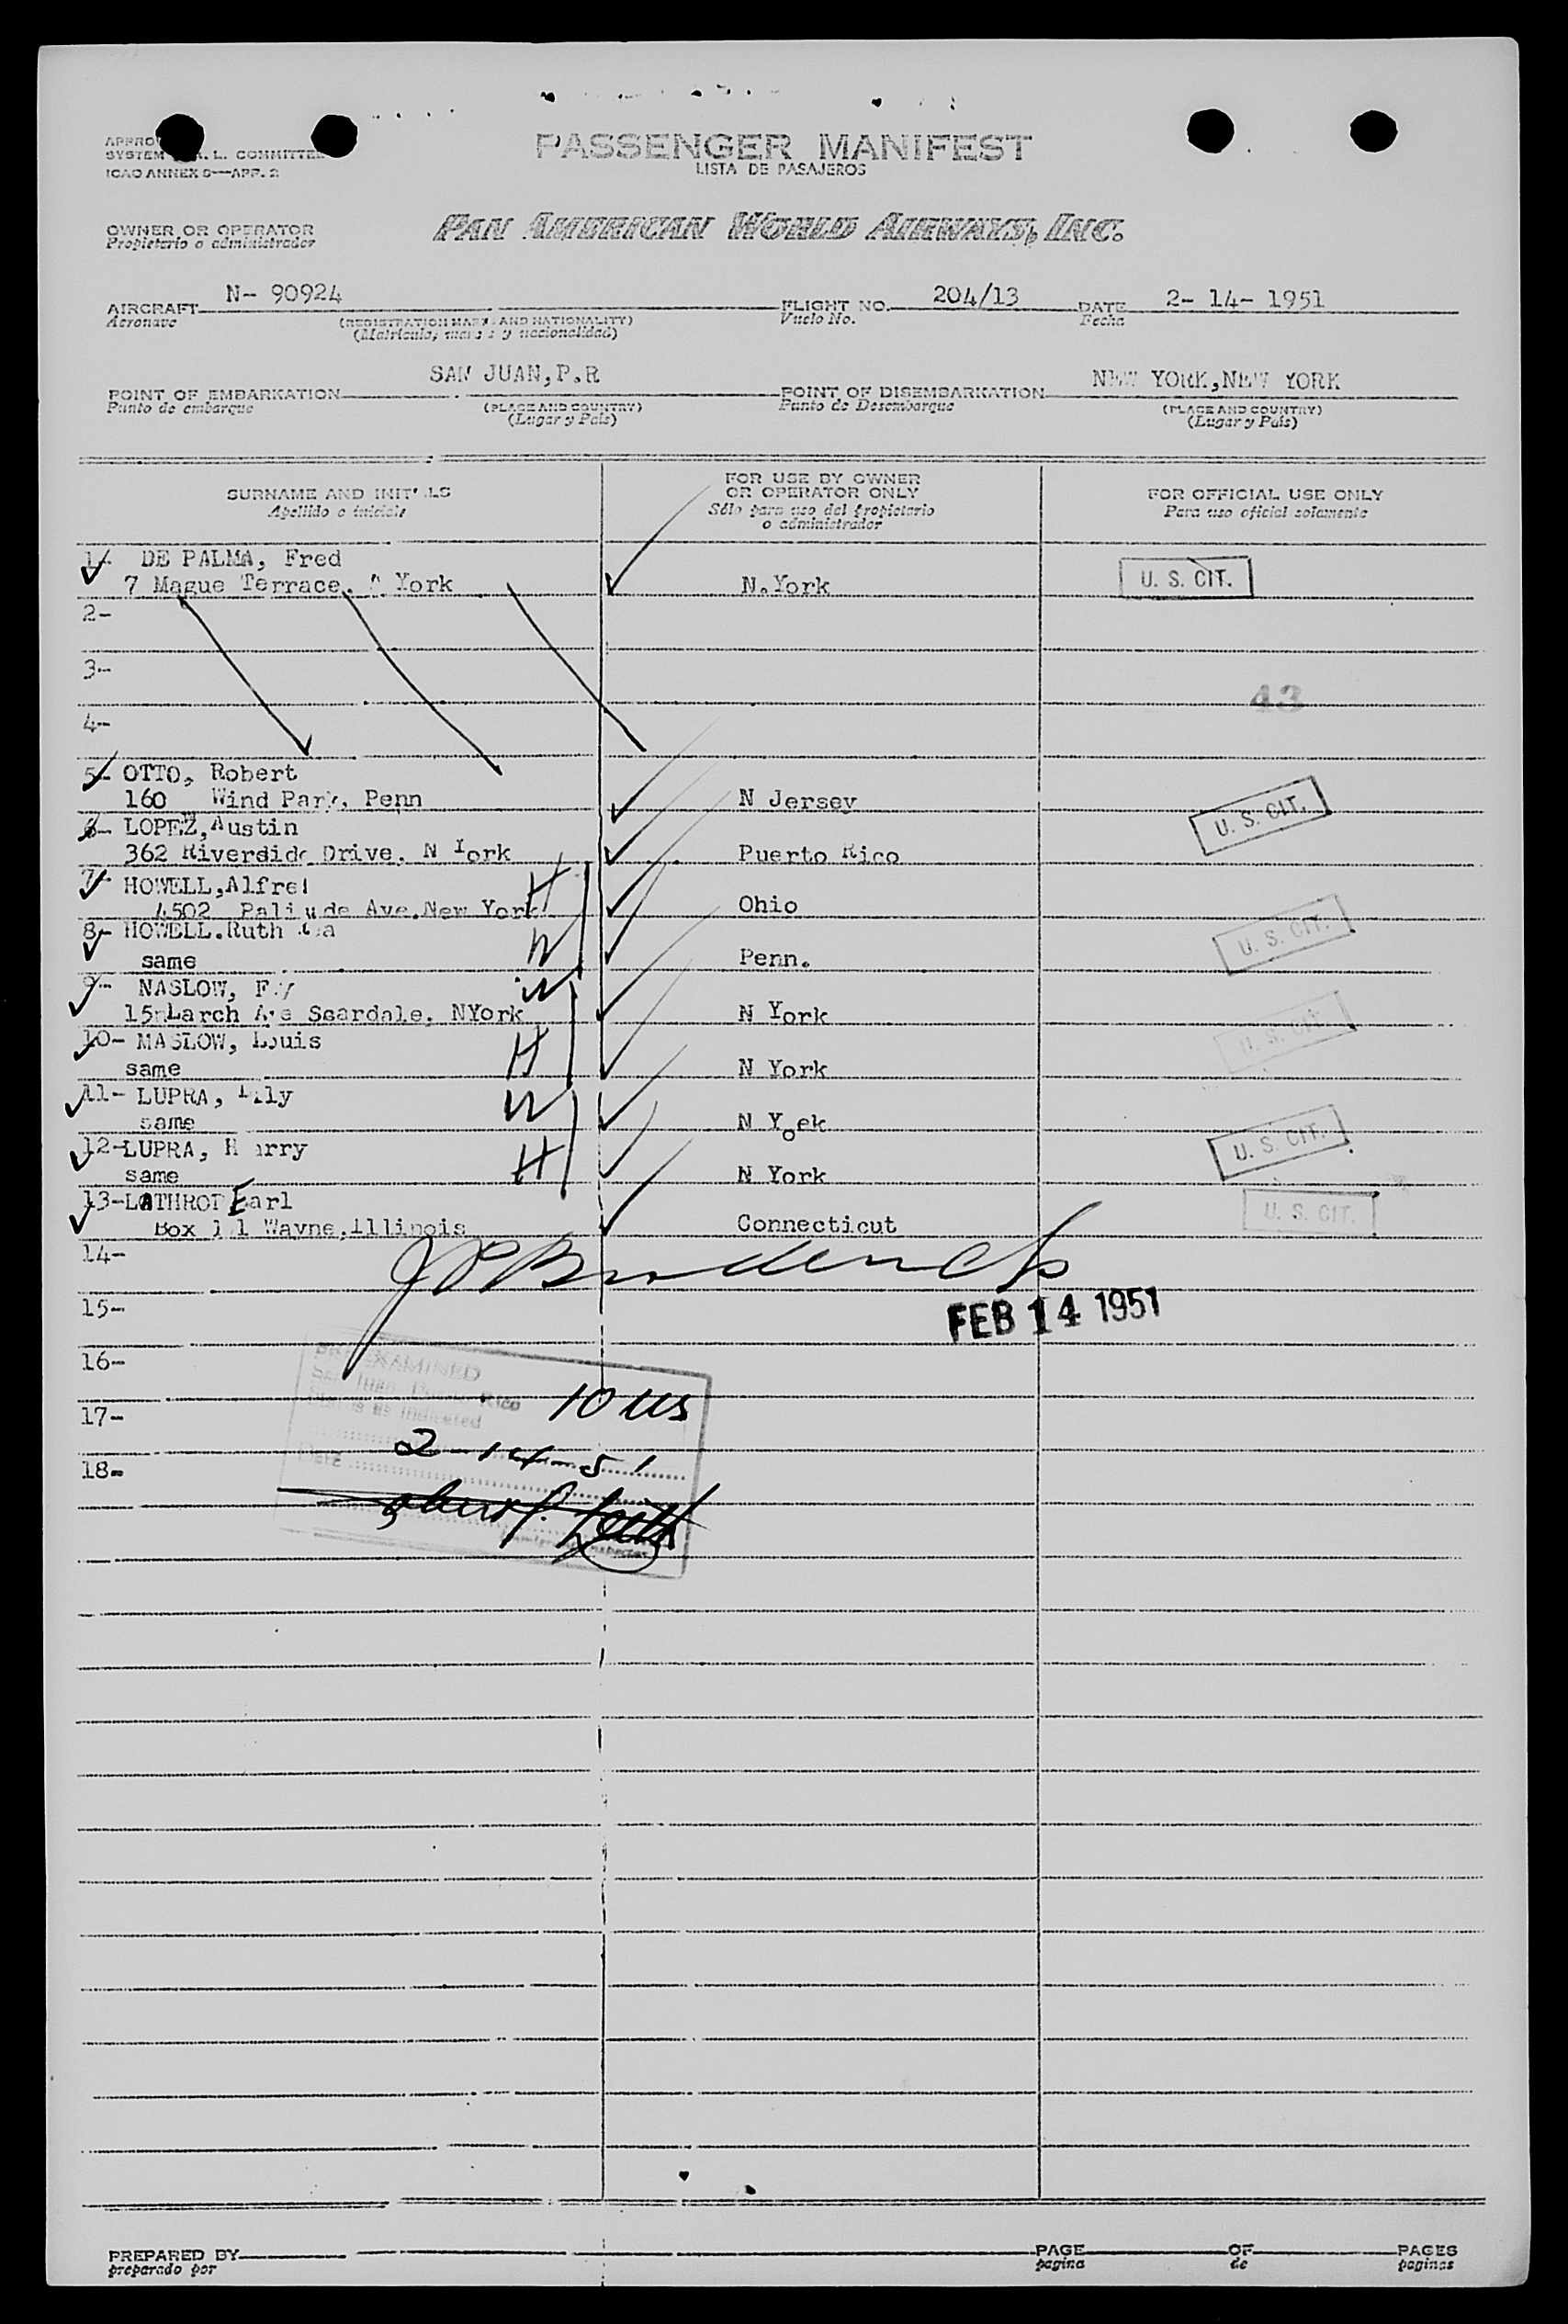 PASSENGER MANIFEST
LISTA DE PASAJEROS
SYSTEM A. L. COMMITTEE
ICAO ANNEX 9—APP. 2
OWNER OR OPERATOR
Propietario o administrador
PAN AMERICAN WORLD AIRWAYS, INC.
AIRCRAFT N- 90924 FLIGHT NO. 204/13 DATE 2- 14- 1951
Aeronave (REGISTRATION MARKS AND NATIONALITY) Vuelo No. Fecha
(Matricula, marcas y nacionalidad)
POINT OF EMBARKATION SAN JUAN,P.R POINT OF DISEMBARKATION NEW YORK,NEW YORK
Punto de embarque (PLACE AND COUNTRY) Punto de Desembarque (PLACE AND COUNTRY)
(Lugar y País) (Lugar y País)
SURNAME AND INITIALS FOR USE BY OWNER OR OPERATOR ONLY FOR OFFICIAL USE ONLY
Apellido e iniciale Sólo para uso del propietario o administrador Para uso oficial solamente
1- DE PALMA, Fred
7 Mague Terrace. York N.York U. S. CIT.
2-
3-
4- 43
5- OTTO, Robert
160 Wind Park, Penn N Jersey U. S. CIT.
6- LOPEZ,Austin
362 Riverside Drive. N York Puerto Rico
7- HOWELL,Alfred H
4502 Ave.New York Ohio U. S. CIT.
8- HOWELL.Ruth W
same Penn.
9- NASLOW, W
15 Larch Ave Scardale, NYork N York U. S. CIT.
10- MASLOW, Louis H
same N York
11- LUPRA, W
same N Yoek U. S. CIT.
12-LUPRA, Harry H
same N York
13-LATHROP Earl U. S. CIT.
Box Wayne,Illinois Connecticut
14-
15- FEB 14 1951
16- PRE-EXAMINED
San Juan, Puerto Rico 10 US
17- Status as indicated
Date 2-14-51
18-
Immigrant Inspector
PREPARED BY PAGE OF PAGES
preparado por pagina de paginas